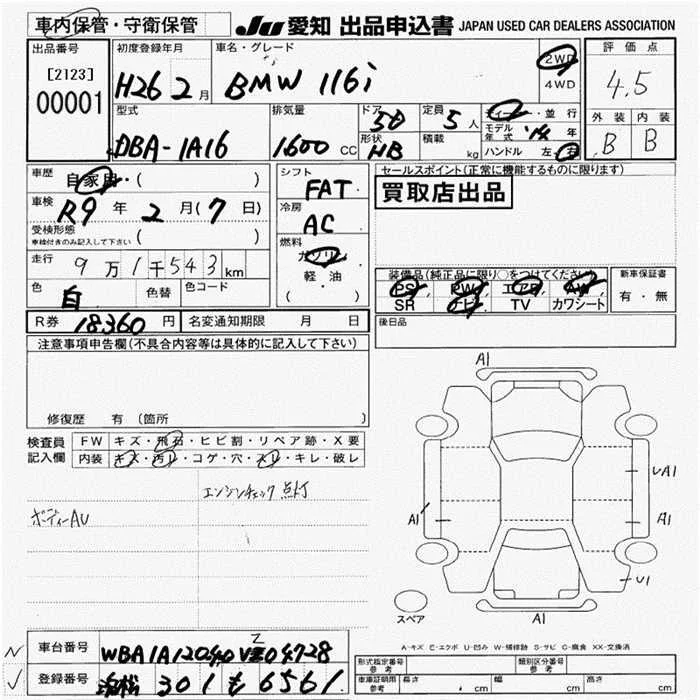 車内保管・守衛保管
JU 愛知 出品申込書 JAPAN USED CAR DEALERS ASSOCIATION
出品番号
[2123]
00001
初度登録年月
H26 2月
車名・グレード
BMW 116i
2WD
4WD
評価点
4.5
外装 内装
B B
型式
DBA-1A16
排気量
1600 CC
ドア
5D
形状
HB
定員
5人
積載
kg
ディーラー・並行
モデル年式 '14 年
ハンドル 左・右
車歴
自家用・( )
車検
R9年 2月(7日)
受検形態
車検付きのみ記入して下さい ( )
走行
9万1千543km
色
白
色替
色コード
R券 18360円
名変通知期限 月 日
シフト
FAT
冷房
AC
燃料
ガソリン
軽・油
( ・ )
セールスポイント(正常に機能するものに限ります)
買取店出品
装備品(純正品に限り○をつけてください)
PS PW エアB AW
SR ナビ TV カワシート
新車保証書
有・無
後日品
注意事項申告欄(不具合内容等は具体的に記入して下さい)
修復歴 有 (箇所 )
検査員記入欄
FW キズ・飛石・ヒビ割・リペア跡・X要
内装 キズ・汚レ・コゲ・穴・スレ・キレ・破レ
エンジンチェック 点灯
ボディーAU
A1
UA1
A1
A1
U1
A1
スペア
A-キズ E-エクボ U-凹み W-補修跡 S-サビ C-腐食 XX-交換済
車台番号
Z
登録番号
浜松 301 も 6561
形式指定番号 参考
類別区分番号 参考
車庫証明用 参考
長さ cm 幅 cm 高さ cm